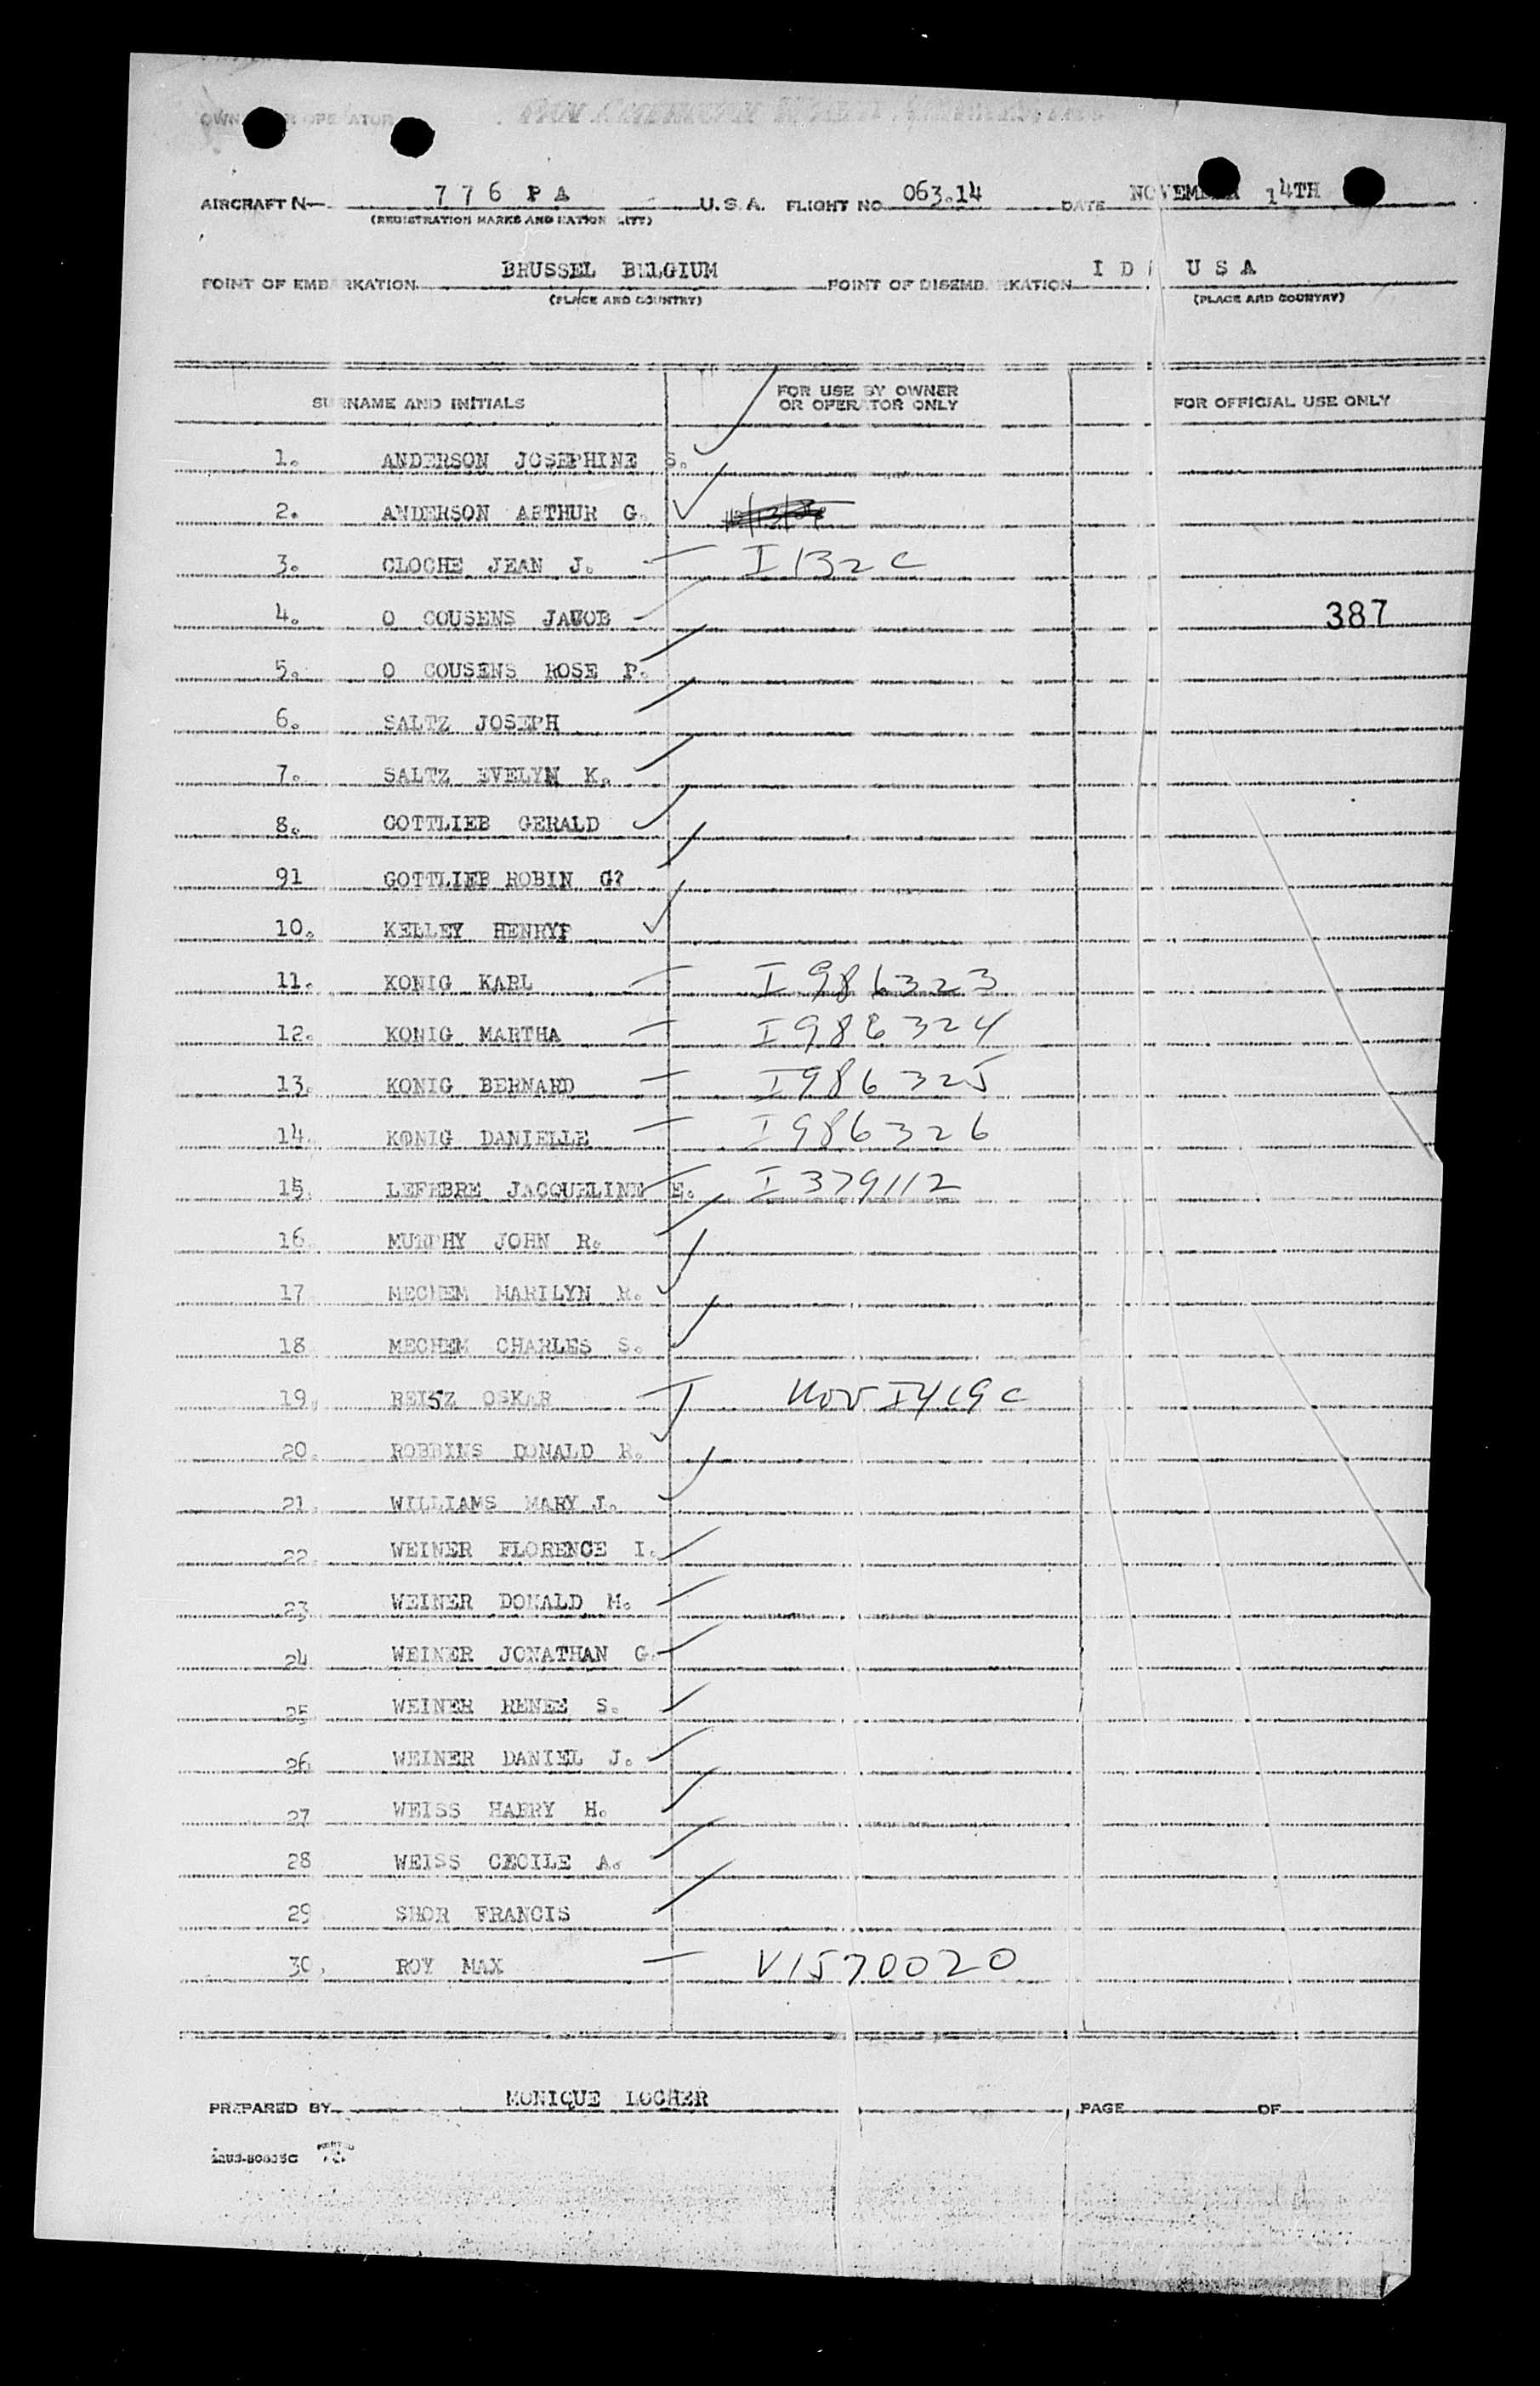 OWN R OPERATOR PAN AMERICAN WORLD
AIRCRAFT N- 7 7 6 P A U.S.A. FLIGHT NO 063.14 DATE NOVEMBER 14TH
(REGISTRATION MARKS AND NATION LITY)
POINT OF EMB RKATION BRUSSEL BELGIUM POINT OF DISEMB RKATION I D USA
(PLACE AND COUNTRY) (PLACE AND COUNTRY)
SURNAME AND INITIALS FOR USE BY OWNER OR OPERATOR ONLY FOR OFFICIAL USE ONLY
1. ANDERSON JOSEPHINE S.
2. ANDERSON ARTHUR G.
3. CLOCHE JEAN J. I 132 C
4. O COUSENS JACOB 387
5. O COUSENS ROSE P.
6. SALTZ JOSEPH
7. SALTZ EVELYN K.
8. GOTTLIEB GERALD
91 GOTTLIEB ROBIN G?
10. KELLEY HENRYP
11. KONIG KARL I 986323
12. KONIG MARTHA I 986324
13. KONIG BERNARD I 986325
14. KONIG DANIELLE I 986326
15. LEFEBRE JACQUELINE E. I 379112
16. MURPHY JOHN R.
17 MECHEM MARILYN R.
18 MECHEM CHARLES S.
19. REISZ OSKAR Nov I419 C
20. ROBBINS DONALD R.
21. WILLIAMS MARY J.
22. WEINER FLORENCE I.
23 WEINER DONALD M.
24 WEINER JONATHAN G.
25 WEINER RENEE S.
26 WEINER DANIEL J.
27 WEISS HARRY H.
28 WEISS CECILE A.
29 SHOR FRANCIS
30. ROY MAX V1570020
PREPARED BY MONIQUE LOCHER PAGE OF